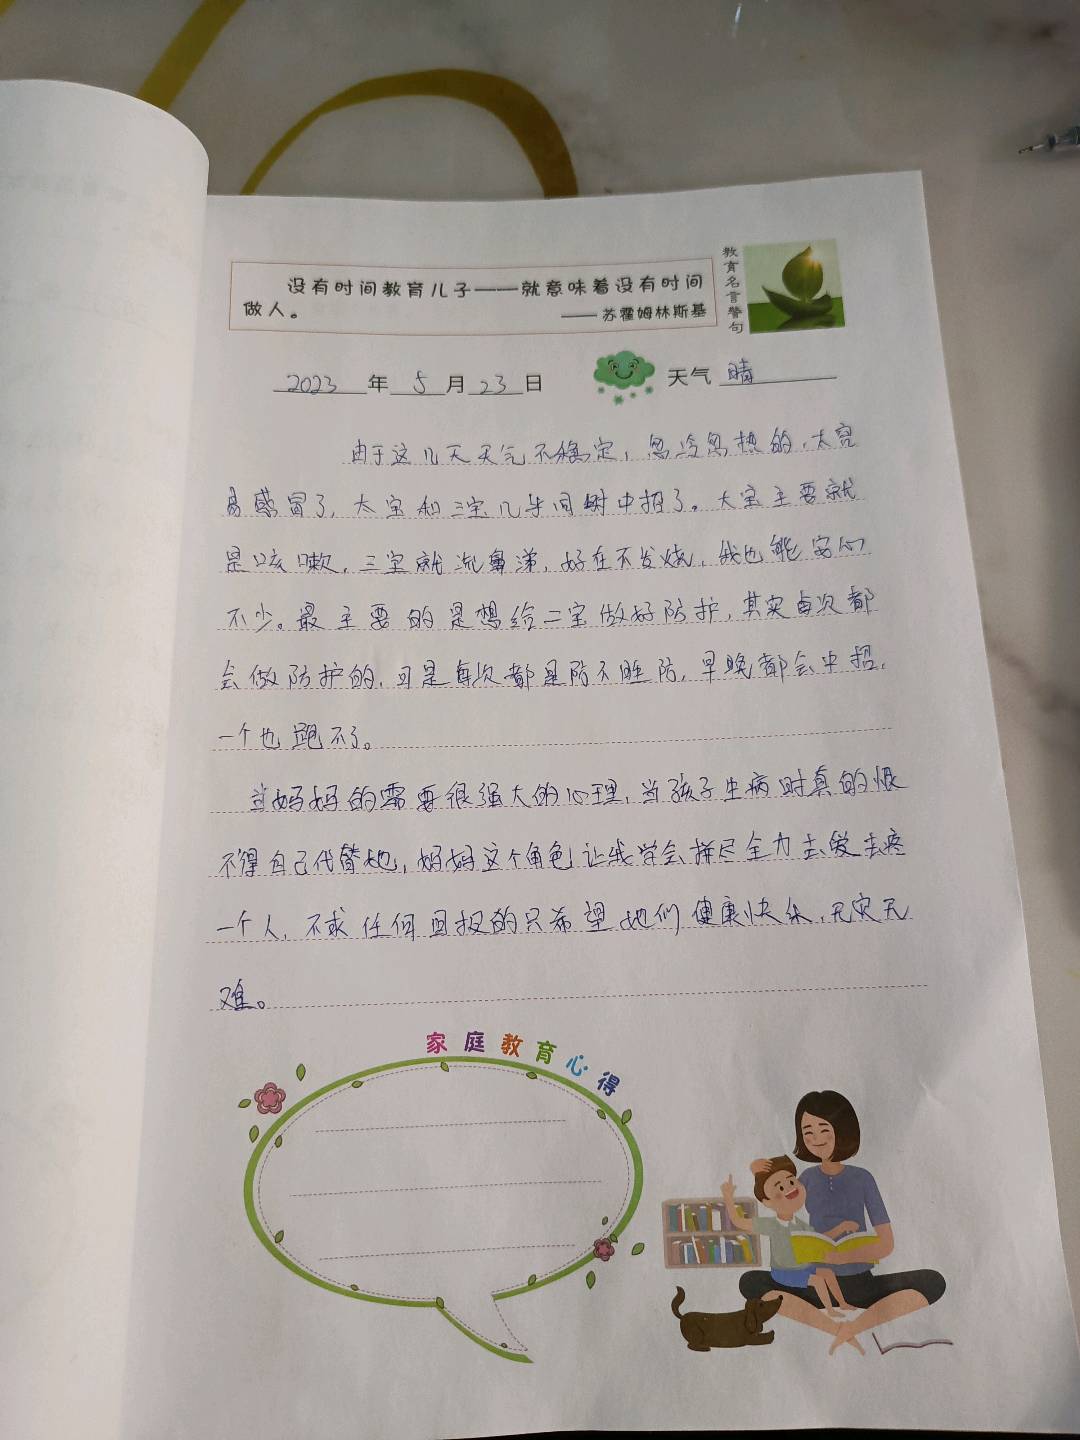 没有时间教育儿子——就意味着没有时间
做人。
—— 苏霍姆林斯基
教育名言警句
2023年5月23日
天气 晴
由于这几天天气不稳定，忽冷忽热的，太容
易感冒了，大宝和三宝几乎同时中招了。大宝主要就
是咳嗽，三宝就流鼻涕，好在不发烧，我也能安心
不少。最主要的是想给二宝做好防护，其实每次都
会做防护的，可是每次都是防不胜防，早晚都会中招，
一个也跑不了。
当妈妈的需要很强大的心理，当孩子生病时真的恨
不得自己代替她，妈妈这个角色让我学会拼尽全力去爱去疼
一个人，不求任何回报的只希望她们健康快乐，无灾无
难。
家庭教育心得